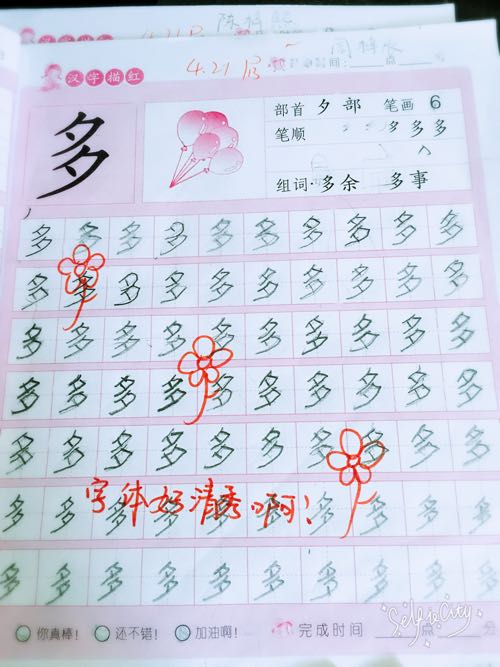 4.21日
4.21日
汉字描红
多
部首 夕部 笔画 6
笔顺 多 多 多
组词·多余 多事
多 多 多 多 多 多 多 多 多 多
多 多 多 多 多 多 多 多 多 多
多 多 多 多 多 多 多 多 多 多
多 多 多 多 多 多 多 多 多 多
多 多 多 多 多 多 多 多 多 多
多 多 多 多 多 多 多 多 多 多
字体好清秀啊!
多 多 多 多 多 多 多 多 多 多
你真棒! 还不错! 加油啊! 完成时间 点 分
SelfieCity